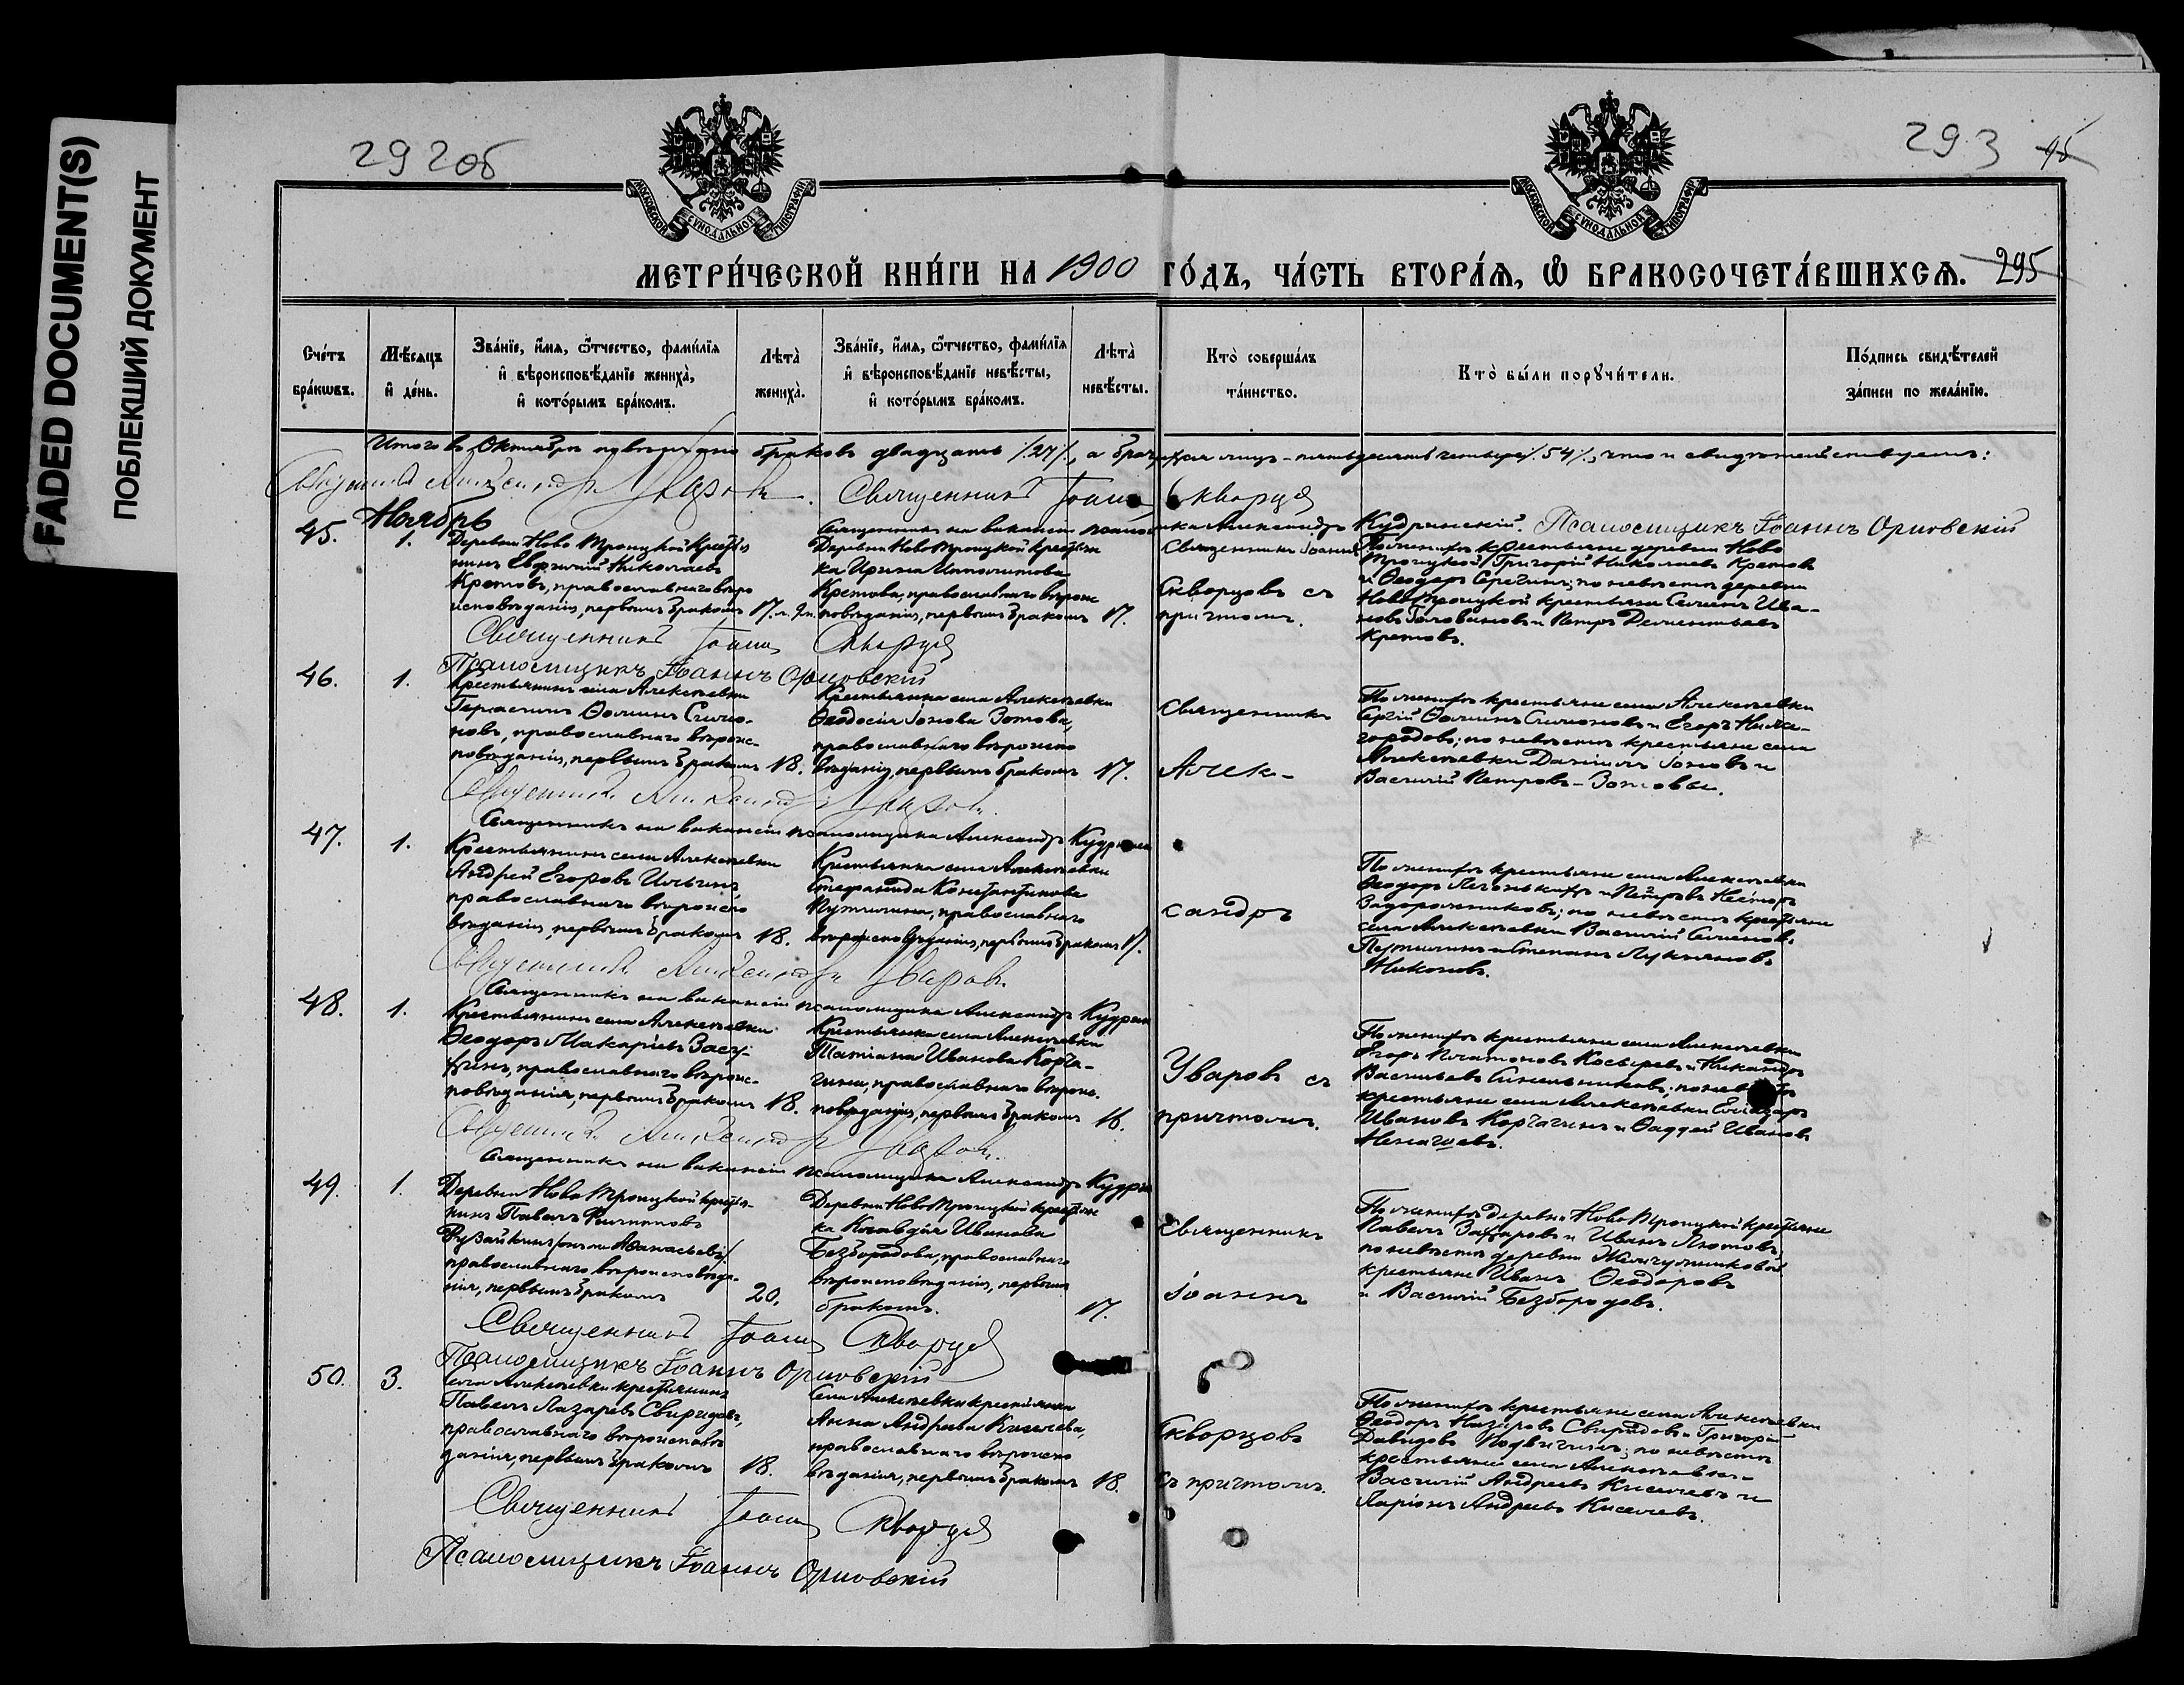 FADED DOCUMENT(S)
ПОБЛЕКШИЙ ДОКУМЕНТ
292об
293
95
МОСКОВСКОЙ СУНОДАЛЬНОЙ ТИПОГРАФІИ
МОСКОВСКОЙ СУНОДАЛЬНОЙ ТИПОГРАФІИ
МЕТРИ́ЧЕСКОЙ КНИ́ГИ НА 1900 ГО́ДЪ, ЧА́СТЬ ВТОРА́Я, Ѡ БРАКОСОЧЕТА́ВШИХСЯ. 295
Сче́тъ бра́кѡвъ.
Мѣ́сяцъ и҆ де́нь.
Зва́нїе, и҆́мя, ѻ҆́тчество, фами́лїя и҆ вѣроисповѣ́данїе жениха̀, и҆ кото́рымъ бра́комъ.
Лѣта̀ жениха̀.
Зва́нїе, и҆́мя, ѻ҆́тчество, фами́лїя и҆ вѣроисповѣ́данїе невѣ́сты, и҆ кото́рымъ бра́комъ.
Лѣта̀ невѣ́сты.
Кто̀ соверша́лъ та́инство.
Кто̀ бы́ли порꙋчи́тели.
По́дпись свидѣ́телей за́писи по жела́нїю.
Итого въ Октябрѣ повѣнчано браковъ двадцать /27/, а брач лицъ - пятьдесятъ четыре /54/, что и свидѣтельствуемъ:
Священникъ Александръ Уваровъ. Священникъ Іоаннъ Скворцовъ
Священникъ на вакансіи псаломщика Александръ Кудринскій. Псаломщикъ Іоаннъ Орловскій
Ноябрь
45.
1.
Деревни Ново Троицкой крестья
нинъ Евфимій Николаевъ
Кретовъ, православнаго вѣро
исповѣданія, первымъ бракомъ
17.
Деревни Ново Троицкой крестьян
ка Ирина Ипполитова
Кретова, православнаго вѣроис
повѣданія, первымъ бракомъ
17.
Священникъ Іоаннъ
Скворцовъ съ
причтомъ.
По женихѣ крестьяне деревни Ново
Троицкой Григорій Николаевъ Кретовъ
и Ѳеодоръ Серегинъ; по невѣстѣ деревни
Ново Троицкой крестьяне Семенъ Ива-
новъ Голованов и Петръ Дементьевъ
Кретовъ.
Священникъ Іоаннъ Скворцовъ
Псаломщикъ Іоаннъ Орловскій
46.
1.
Крестьянинъ села Алексѣевки
Герасимъ Ѳоминъ Симо-
новъ, православнаго вѣроис-
повѣданія, первымъ бракомъ
18.
Крестьянка села Алексѣевки
Ѳеодосія Іонова Зотова,
православнаго вѣроиспо
вѣданія, первымъ бракомъ
17.
Священникъ
Алек-
По женихѣ крестьяне села Алексѣевки
Сергій Ѳоминъ Симоновъ и Егоръ Ниже-
городовъ; по невѣстѣ крестьяне села
Алексѣевки Даніилъ Іоновъ и
Василій Петровъ - Зотовы.
Священникъ Александръ Уваровъ.
Священникъ на вакансіи псаломщика Александръ Кудринск
47.
1.
Крестьянинъ села Алексѣевки
Андрей Егоровъ Ильинъ
православнаго вѣроиспо
вѣданія, первымъ бракомъ
18.
Крестьянка села Алексѣевки
Стефанида Константинова
Путилина, православнаго
вѣроисповѣданія, первымъ бракомъ
17.
сандръ
По женихѣ крестьяне села Алексѣевки
Ѳеодоръ Легонькихъ и Петровъ Несторъ
Задорожниковъ; по невѣстѣ крестьяне
села Алексѣевки Василій Семеновъ
Путилинъ и Степанъ Лукьяновъ
Никоновъ.
Священникъ Александръ Уваровъ.
Священникъ на вакансіи псаломщика Александръ Кудрин
48.
1.
Крестьянинъ села Алексѣевки
Ѳеодоръ Макаріевъ Засу-
хинъ, православнаго вѣроис-
повѣданія, первымъ бракомъ
18.
Крестьянка села Алексѣевки
Татіана Иванова Корча-
гина, православнаго вѣроис.
повѣданія, первымъ бракомъ
16.
Уваровъ съ
причтомъ.
По женихѣ крестьяне села Алексѣевки
Егоръ Платоновъ Косыревъ и Никандръ
Васильевъ Синельниковъ; по нев
крестьяне села Алексѣевки Елеазаръ
Ивановъ Корчагинъ и Ѳаддей Ивановъ
Ненагоевъ.
Священникъ Александръ Уваровъ.
Священникъ на вакансіи псаломщика Александръ Кудрин
49.
1.
Деревни Ново Троицкой крестья-
нинъ Павелъ Филипповъ
Рузайкинъ /онъ же Аѳанасьевъ/
православнаго вѣроисповѣда-
нія, первымъ бракомъ
20.
Деревни Ново Троицкой крестьян
ка Клавдія Иванова
Безбородова, православнаго
вѣроисповѣданія, первымъ
бракомъ.
17.
Священникъ
Іоаннъ
По женихѣ деревни Ново Троицкой крестьяне
Павелъ Захаровъ и Иванъ Лютовъ,
по невѣстѣ деревни Жемчужниковой
крестьяне Иванъ Ѳеодоровъ
и Василій Безбородовъ.
Священникъ Іоаннъ Скворцовъ
Псаломщикъ Іоаннъ Орловскій
50.
3.
Села Алексѣевки крестьянинъ
Павелъ Лазаревъ Свиридовъ,
православнаго вѣроисповѣ
данія, первымъ бракомъ
18.
Села Алексѣевки крестьянка
Анна Андреева Киселева,
православнаго вѣроиспо
вѣданія, первымъ бракомъ
18.
Скворцовъ
съ причтомъ.
По женихѣ крестьяне села Алексѣевки
Ѳеодоръ Назаровъ Свиридовъ и Григорій
Давидовъ Подвигинъ; по невѣстѣ
крестьяне села Алексѣевки
Василій Андреевъ Киселевъ и
Ларіонъ Андреевъ Киселевъ.
Священникъ Іоаннъ Скворцовъ
Псаломщикъ Іоаннъ Орловскій